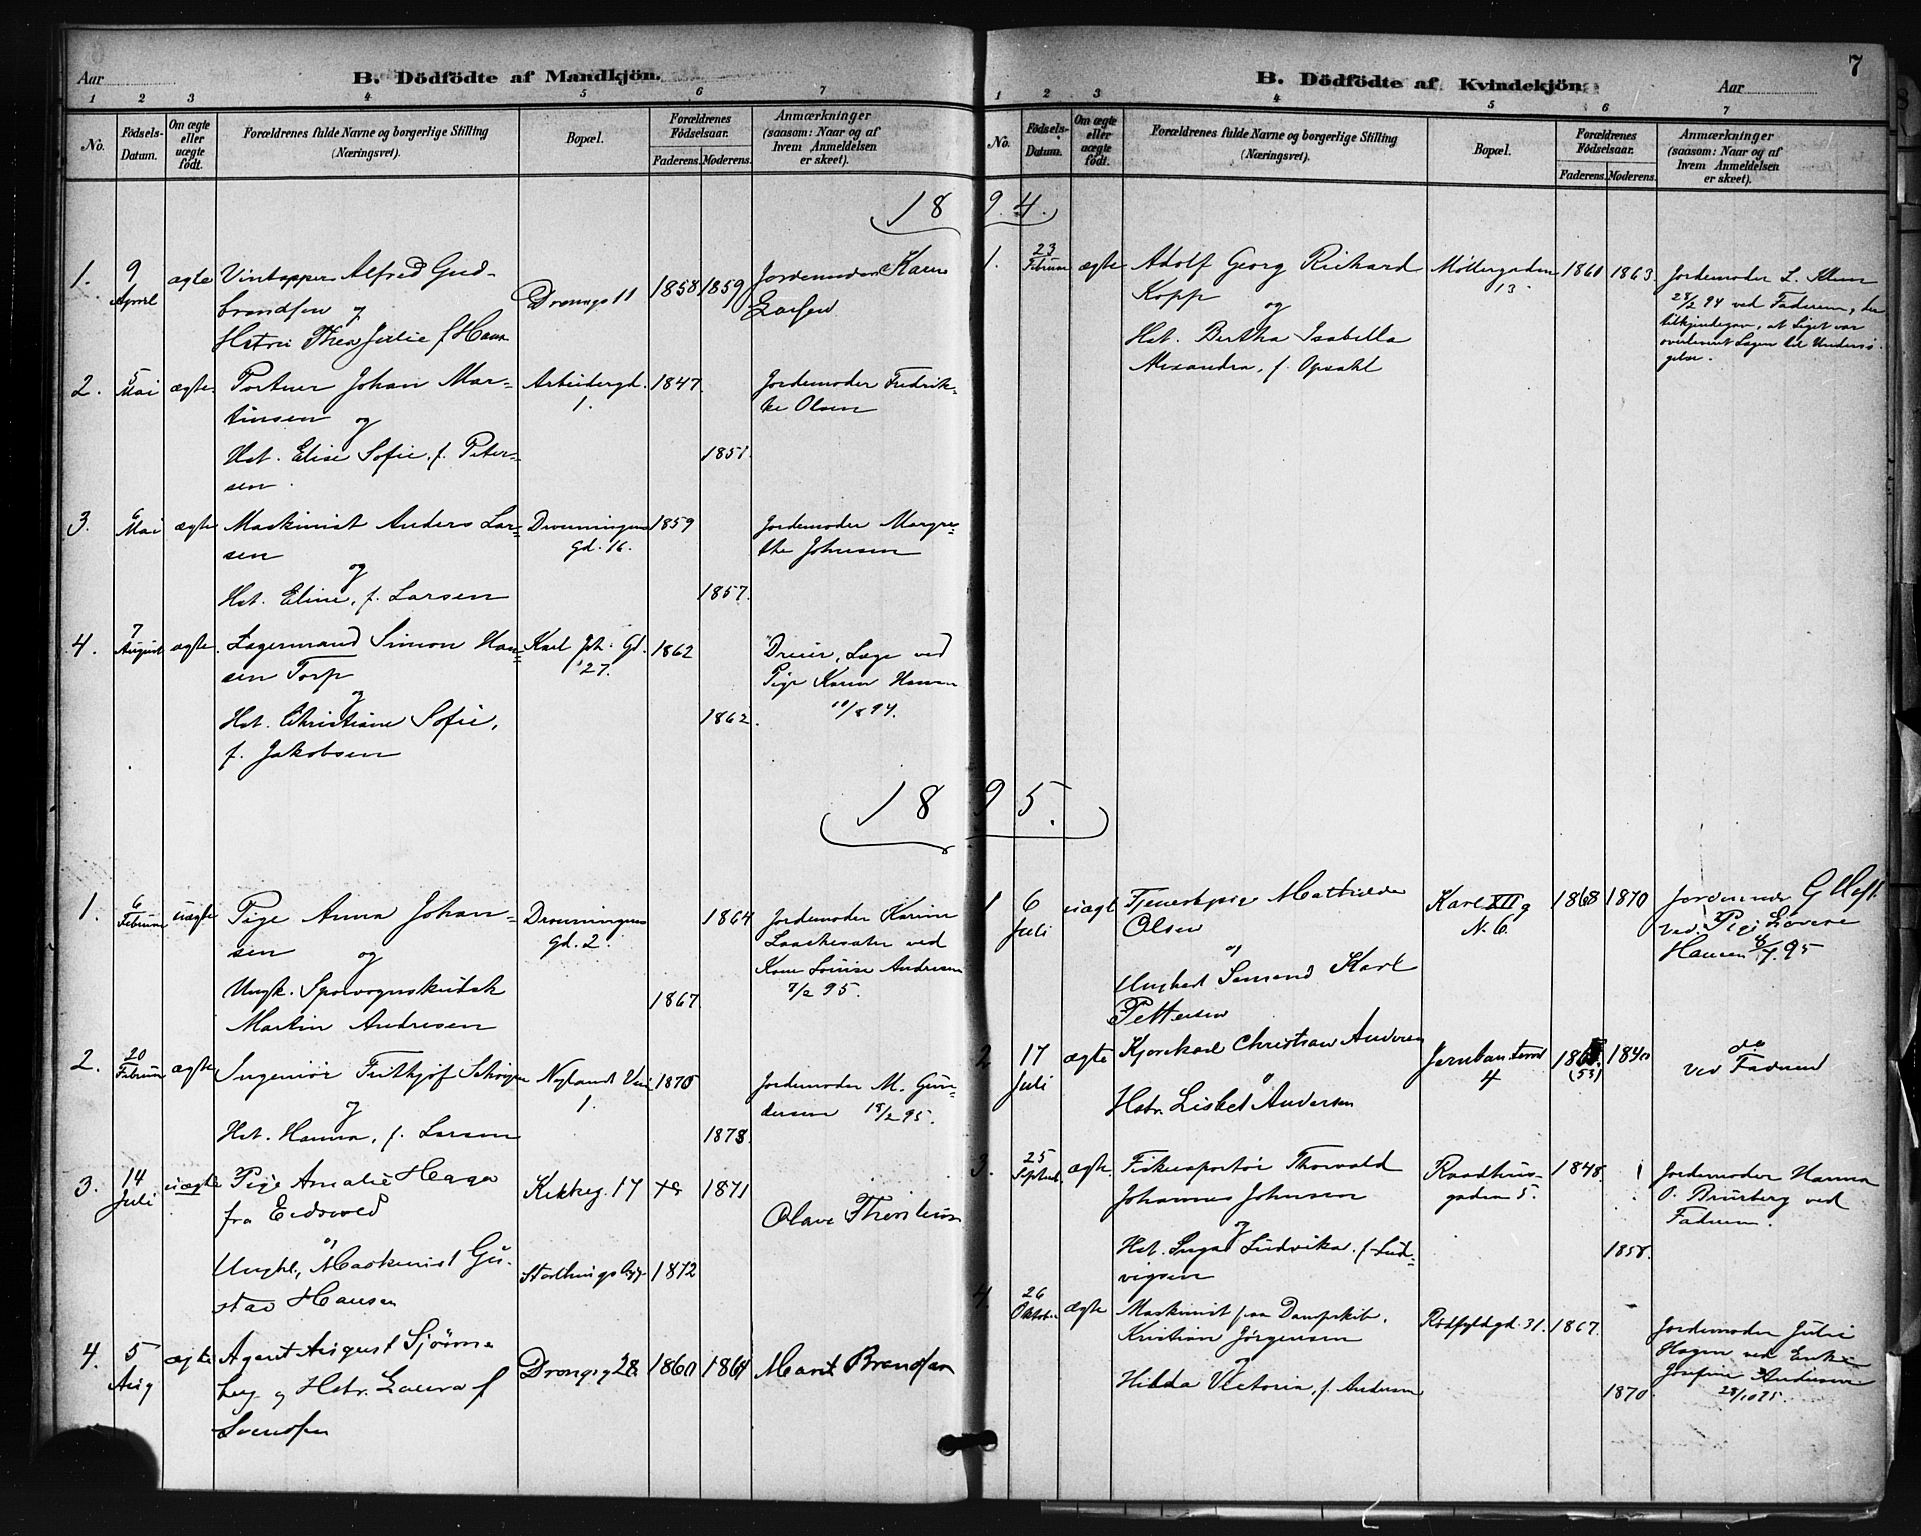 Aar
B. Dödfödte af Mandkjön.
1 2 3 4 5 6 7
No.
Födsels-
Datum.
Om ægte
eller
uægte
födt.
Forældrenes fulde Navne og borgerlige Stilling
(Næringsvei).
Bopæl.
Forældrenes
Födselsaar.
Faderens. Moderens.
Anmærkninger
(saasom: Naar og af
hvem Anmeldelsen
er skeet).
1894.
1. 9 April ægte Alfred Gud-
brandsen og Dronngs 11 1858 1859 Jordemoder Karen
Larsen
Hstru Thea Julie f. Hansen
2. 5 Mai ægte. Portner Johan Mar-
tinsen og
Hst. Elise Sofie, f. Peter-
sen.
Arbeidergd.
1.
1847.
1851.
Jordemoder Fredrik-
ke Olsen
3. 6 Mai ægte Maskinist Anders Lar-
sen
og
Hst. Eline, f. Larsen
Dronningens
Gd. 16.
1859
1857.
Jordemoder Margre-
the Johnsen
4. 7 August ægte. Lagermand Simon Han-
sen Torp
og
Hst. Christiane Sofie,
f. Jakobsen
Karl Joh. Gd.
27.
1862
1862.
Læge ved
Pige Karen Hansen
10/8 94.
1895.
1. 6 Februar uægte Pige Anna Johan-
sen og
Ungk. Sporvognskudsk
Martin Andresen
Dronningens
Gd. 2.
1864
1867
Jordemoder Karine
ved
Kone Louise Andresen
7/2 95.
2. 20 Februar ægte Ingeniör Frithjof
og
Hst. Hanna, f. Larsen
Nylands Vei
1.
1875
1873.
Jordemoder M. Gun-
dersen
3. 14 Juli uægte Pige Amalie Haga
fra Eidsvold
og
Ungkl, Maskinist Gu-
stav Hansen
Kirkeg. 17
1871
Storthingsbyg.
1872
Olava
4. 5 Aug ægte Agent August
og Hstr. Laura f
Svendsen
1860 1864 Marit Brandsen
B. Dödfödte af Kvindekjön.
Aar
7
1 2 3 4 5 6 7
No.
Födsels-
Datum.
Om ægte
eller
uægte
födt.
Forældrenes fulde Navne og borgerlige Stilling
(Næringsvei).
Bopæl.
Forældrenes
Födselsaar.
Faderens. Moderens.
Anmærkninger
(saasom: Naar og af
hvem Anmeldelsen
er skeet).
1. 23 Februar ægte Adolf Georg Richard
Kopp og
Hst. Bertha Isabella
Alexandra, f. Opsahl
Möllergaden
13
1861 1863
Jordemoder L. Klem
24/2 94 ved Faderen, der
tilkjendegav, at Liget var
overleveret Lægen til Undersö-
gelse.
1 6 Juli uægt Tjenestpige Mathilde
Olsen
og
Ungkarl Sömand Karl
Pettersen
Karl XII g
N. 6.
1868 1870
Jordemoder
ved Pige
Hansen 95
2 17 Juli ægte Kjörekarl Christian Andersen
og
Hstr. Lisbet Andersen
4
(53)
1840
do
ved Faderen
3. 25 Septbr. ægte. Thorvald
Johannes Johnsen
og
Hst. Inga Ludvika. f. Lud-
vigsen
Raadhus-
gaden 5.
1848.
1858.
Jordemoder Hanna
O. Bruberg ved
Faderen.
4. 26 Oktober ægte Maskinist paa Dampskib.
Kristian Jörgensen
og
Hilda Victoria, f. Andersen
Rödfyldgd. 31.
1867.
1870.
Jordemoder Julie
Hagen ved Enke
Josefine Andersen
28/10 95.